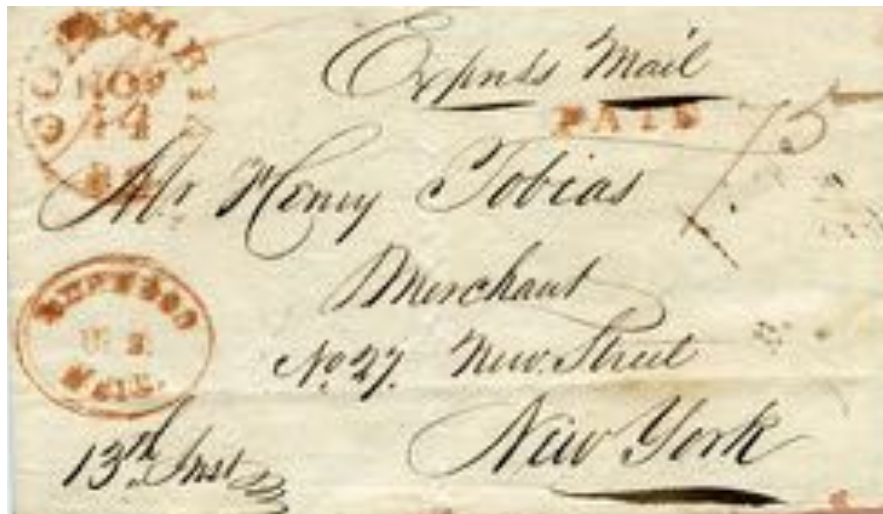 Express Mail
PAID 75
NOV
14
Mr. Henry Tobias
Merchant
No. 27. New Street
New York
EXPRESS
U. S.
MAIL.
13th. Inst